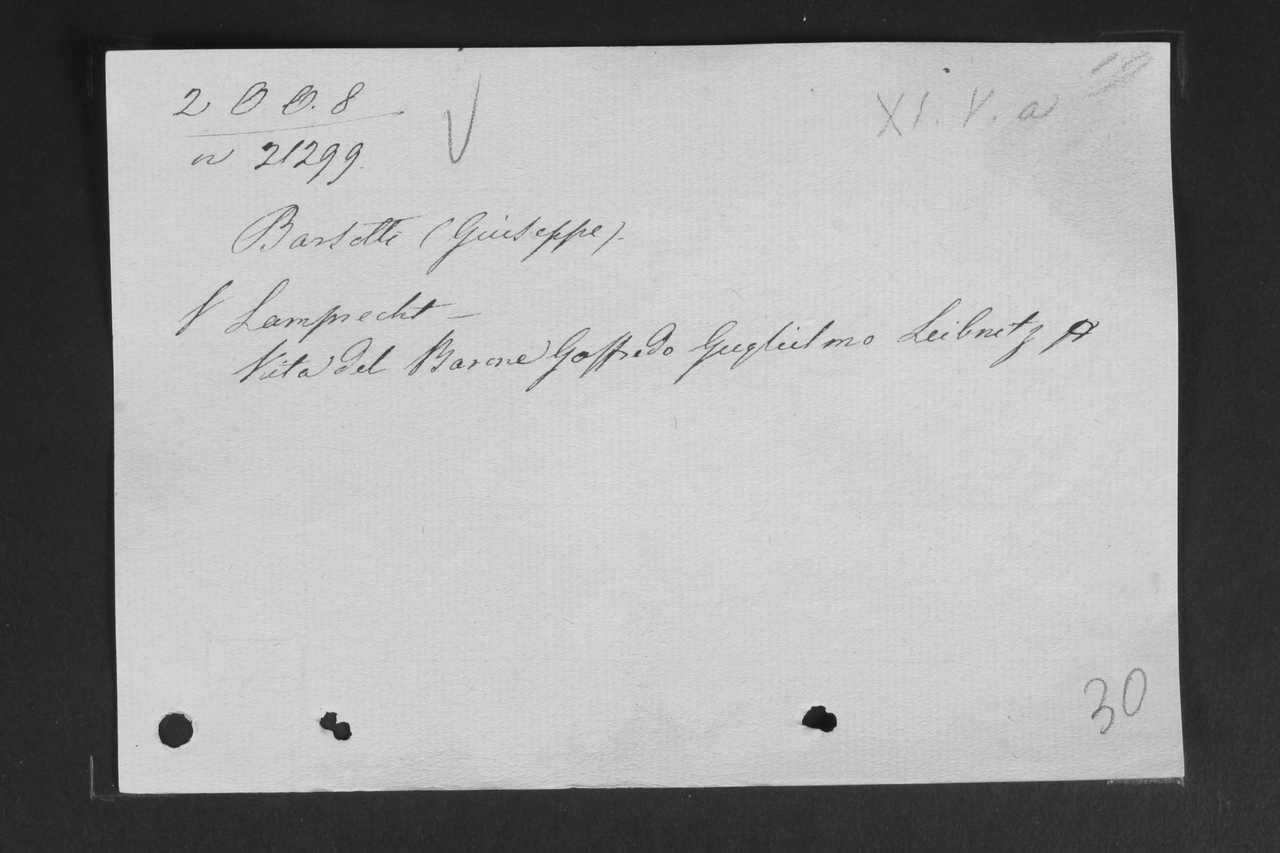 2 O O. 8
XI. V. a
n 21299.
Barsotti (Giuseppe).
V Lamprecht —
Vita del Barone Goffredo Guglielmo Leibnitz
30